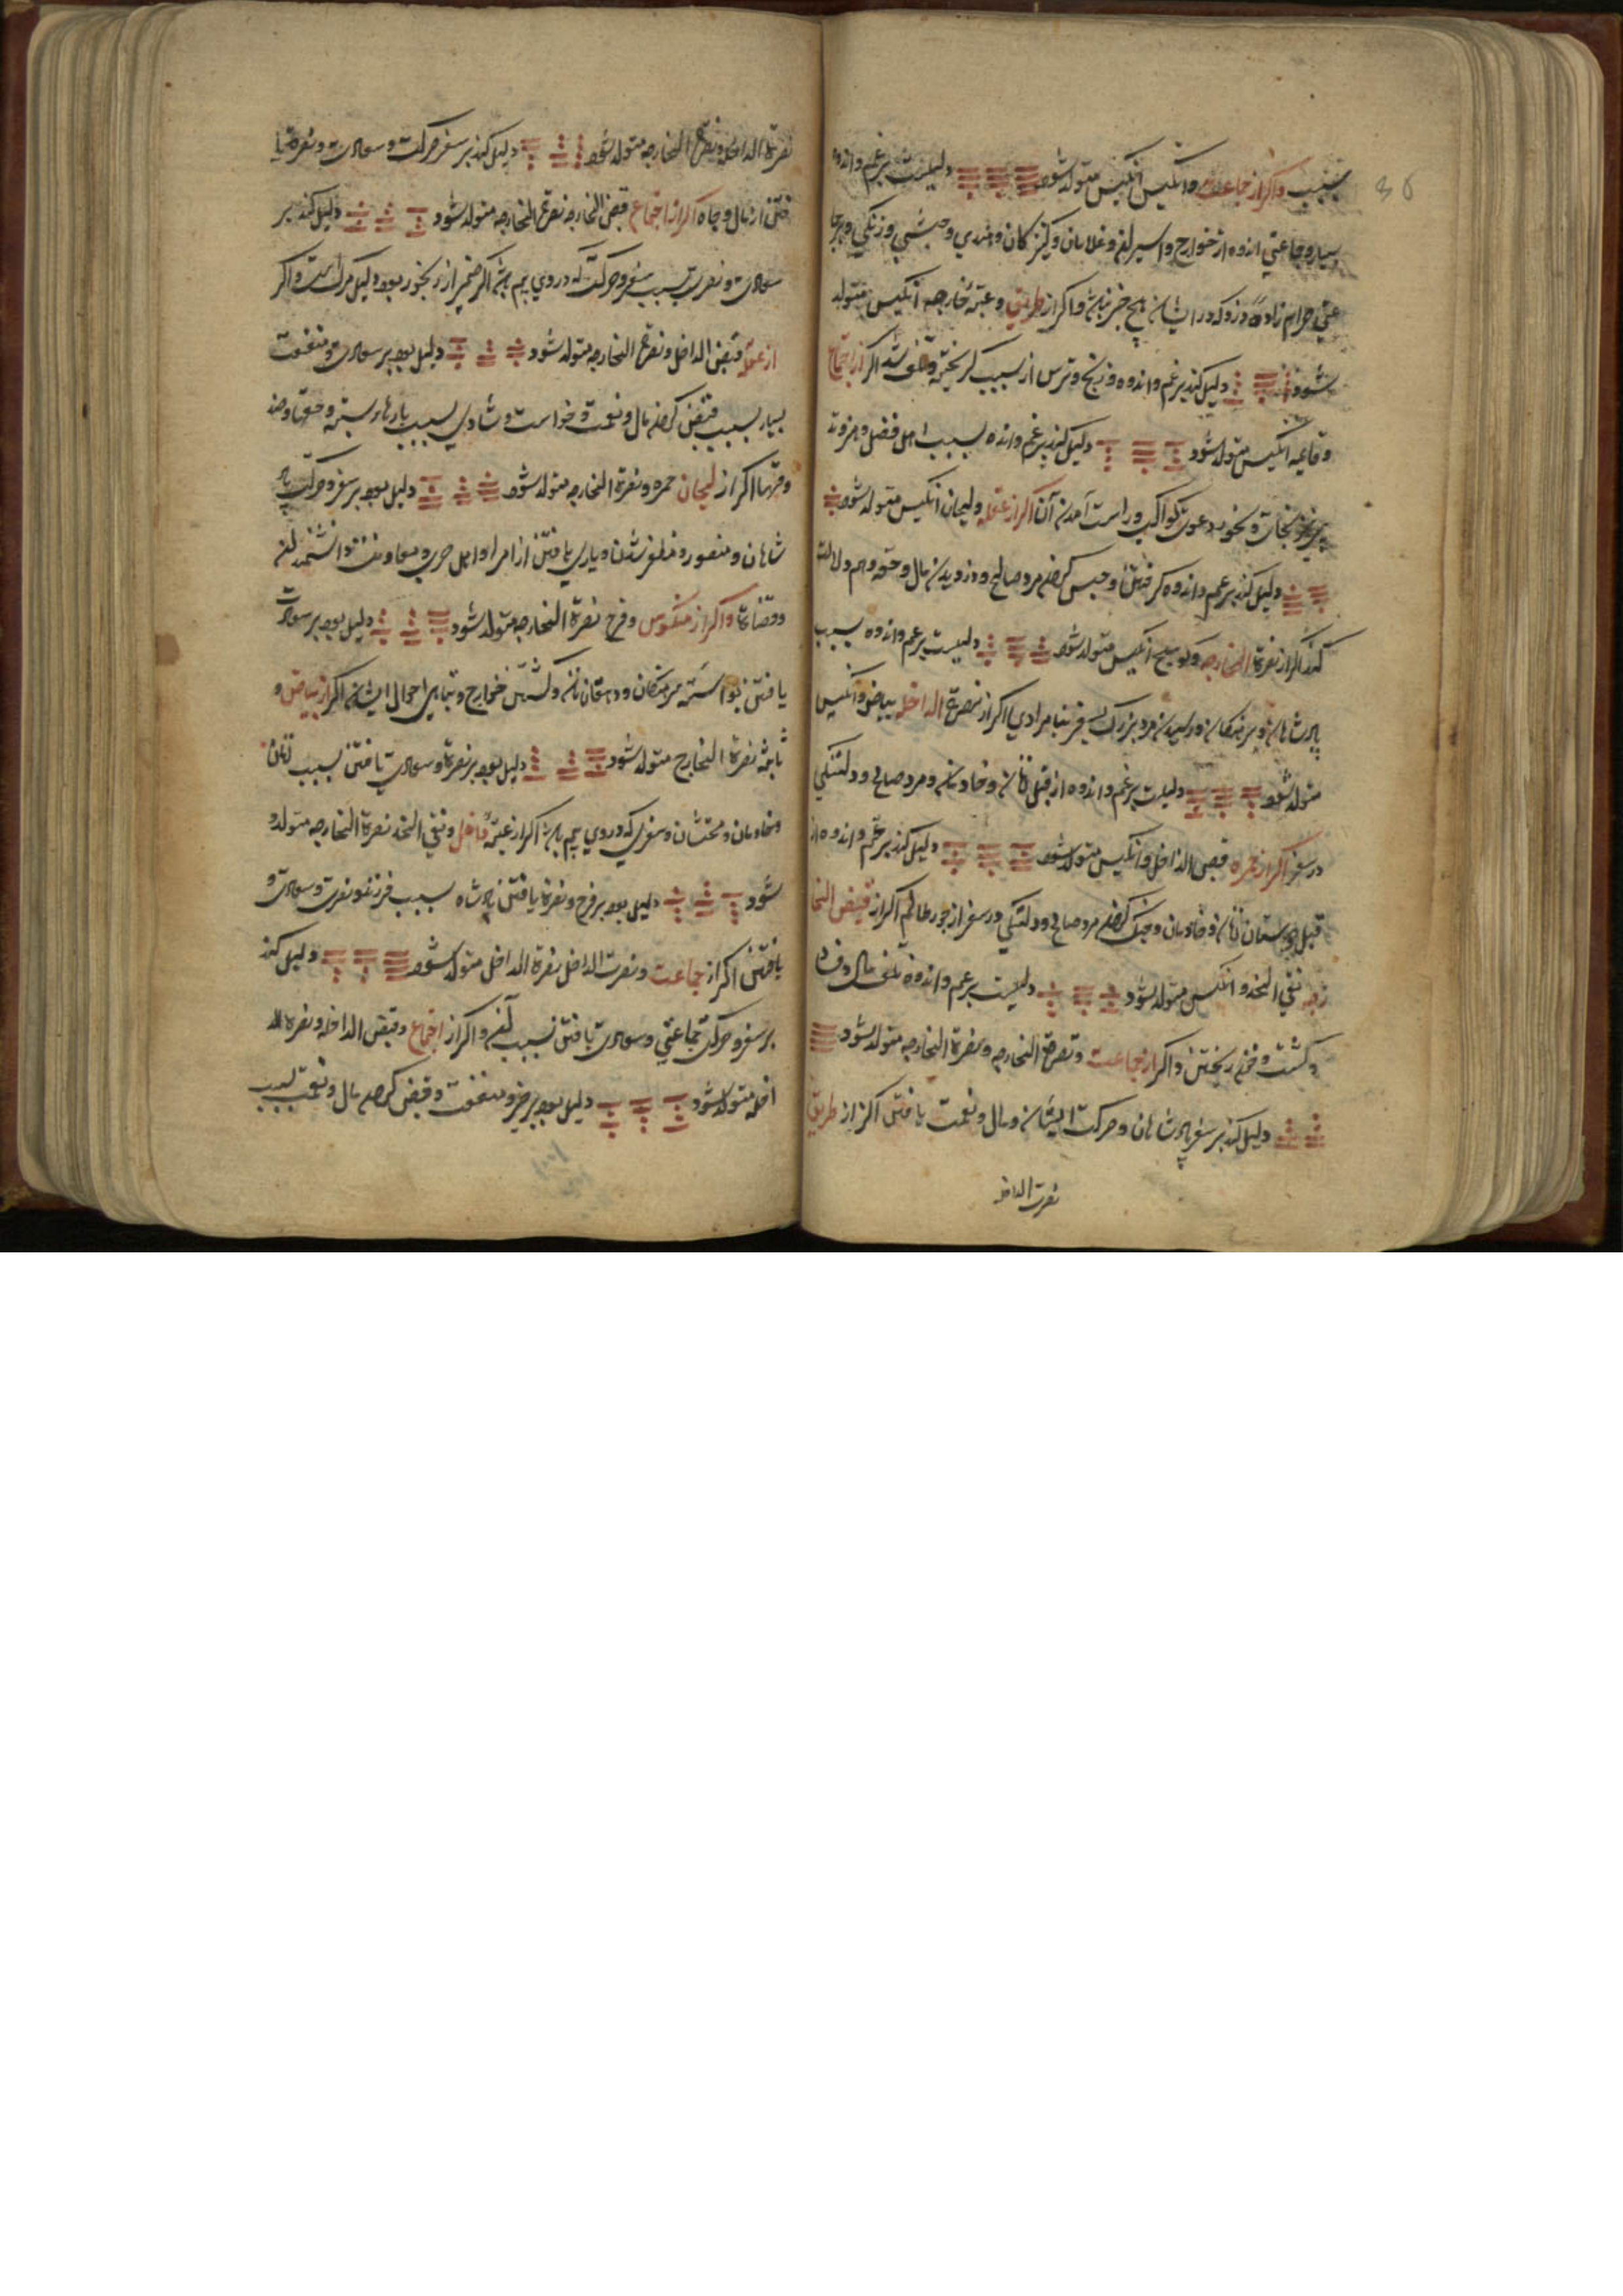 بسبب واکر از جماعت وانکیس انکیس متولد شود دلیلست بر غم واندوه
بسیار وجماعتی اندوه از خوارج واسیر وغلامان وکنیزکان وهندی وحبشی وزنکی وهرجا
حرام زاده ودزد که در ایشان هیچ خیر نباشد واکر از طریق وعتبة خارجه انکیس متولد
شود دلیل کند بر غم واندوه ورنج وترس از سبب کریخته وتلف شد اکر از اجتماع
وانکیس متولد شود دلیل کند بر غم وانده بسبب اهل فضل وهنرمند
ونجوم دعوت کواکب وراست آمدن آن اکر از عقله ولحیان انکیس متولد شود
دلیل کند بر غم واندوه کرفتن وحبس کردن مرد صالح ودزدیدن مال وحقه وهم دلالت
کند اکر از نصرة الخارجه وکوسج انکیس متولد شود دلیلست بر غم واندوه بسبب
پادشاهان وسرهنکان ورسیدن مرد بزرک بسفر بنامرادی اکر از نصرة الداخله بیاض وانکیس
متولد شود دلیلست بر غم واندوه از قبل زنان وخادمان ومرد صالح ودلتنکی
در سفر اکر از حمره قبض الداخل وانکیس متولد شود دلیل کند بر غم واندوه از
قبل زنان وخادمان وجنک کردن مرد صالح ودلتنکی در سفر از جور ظالم اکر از قبض الخا
رجه نقی الخد وانکیس متولد شود دلیلست بر غم واندوه تلف مال
وکشت وخون ریختن واکر از جماعت ونصرة الخارجه ونصرة الخارجه متولد شود
دلیل کند بر سفر پادشاهان وحرکت ایشان ومال ونعمت یافتن اکر از طریق
نصرت الداخل
نصرة الداخله ونصرة الخارجه متولد شود دلیل کند بر سفر وحرکت وسعادت ونصرة یا
فتن از مال وجاه اکر از اجتماع قبض الخارجه نصرة الخارجه متولد شود دلیل کند بر
سعادت ونصرت بسبب سفر وحرکت که در وی بیم باشد اکر ضمیر از رنجور بود دلیل مرک است واکر
از عقله قبض الداخل ونصرة الخارجه متولد شود دلیل بود بر سعادت ومنفعت
بسیار بسبب قبض کردن مال ونعمت وخواست وشادی بسبب بارهاء بسته وحقها وصند
وقها اکر از لحیان حمره ونصرة الخارجه متولد شود دلیل بود بر سفر وحرکت پاد
شاهان ومنصور ومظفر شدن ویاری یافتن از امرا واهل حرب
وقضاة واکر از منکوس وفرح نصرة الخارجه متولد شود دلیل بود بر سعادت
یافتن سرهنکان ودهقانان وکشتن خوارج وتباهی احوال ایشان اکر از بیاض و
نصرة الخارج متولد شود دلیل بود بر نصرة وسعادت یافتن بسبب زنان
وخادمان ومخنثان وسفری که در وی بیم باشد اکر از عتبة داخل ونقی الخد نصرة الخارجه متولد
شود دلیل بود بر فرح ونصرة یافتن پادشاه بسبب فرزند ونصرت وسعادت
یافتن اکر از جماعت ونصرت الداخل نصرة الداخل متولد شود دلیل کند
بر سفر وحرکت جماعتی وسعادت یافتن بسبب واکر از اجتماع وقبض الداخله ونصرة الد
اخله متولد شود دلیل بود بر خیر ومنفعت وقبض کردن مال ونعمت بسبب